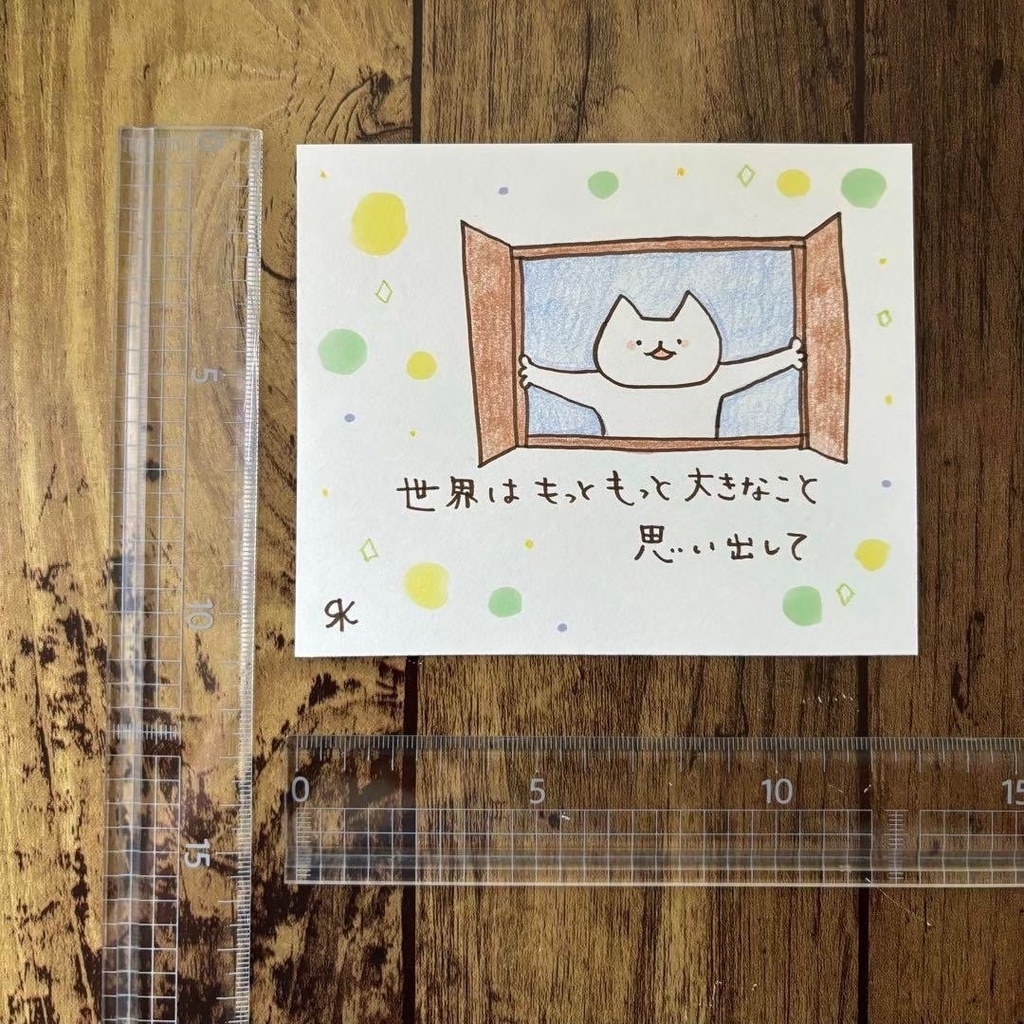 世界はもっともっと大きなこと
思い出して
RK
0
5
10
15
0 5 10 15